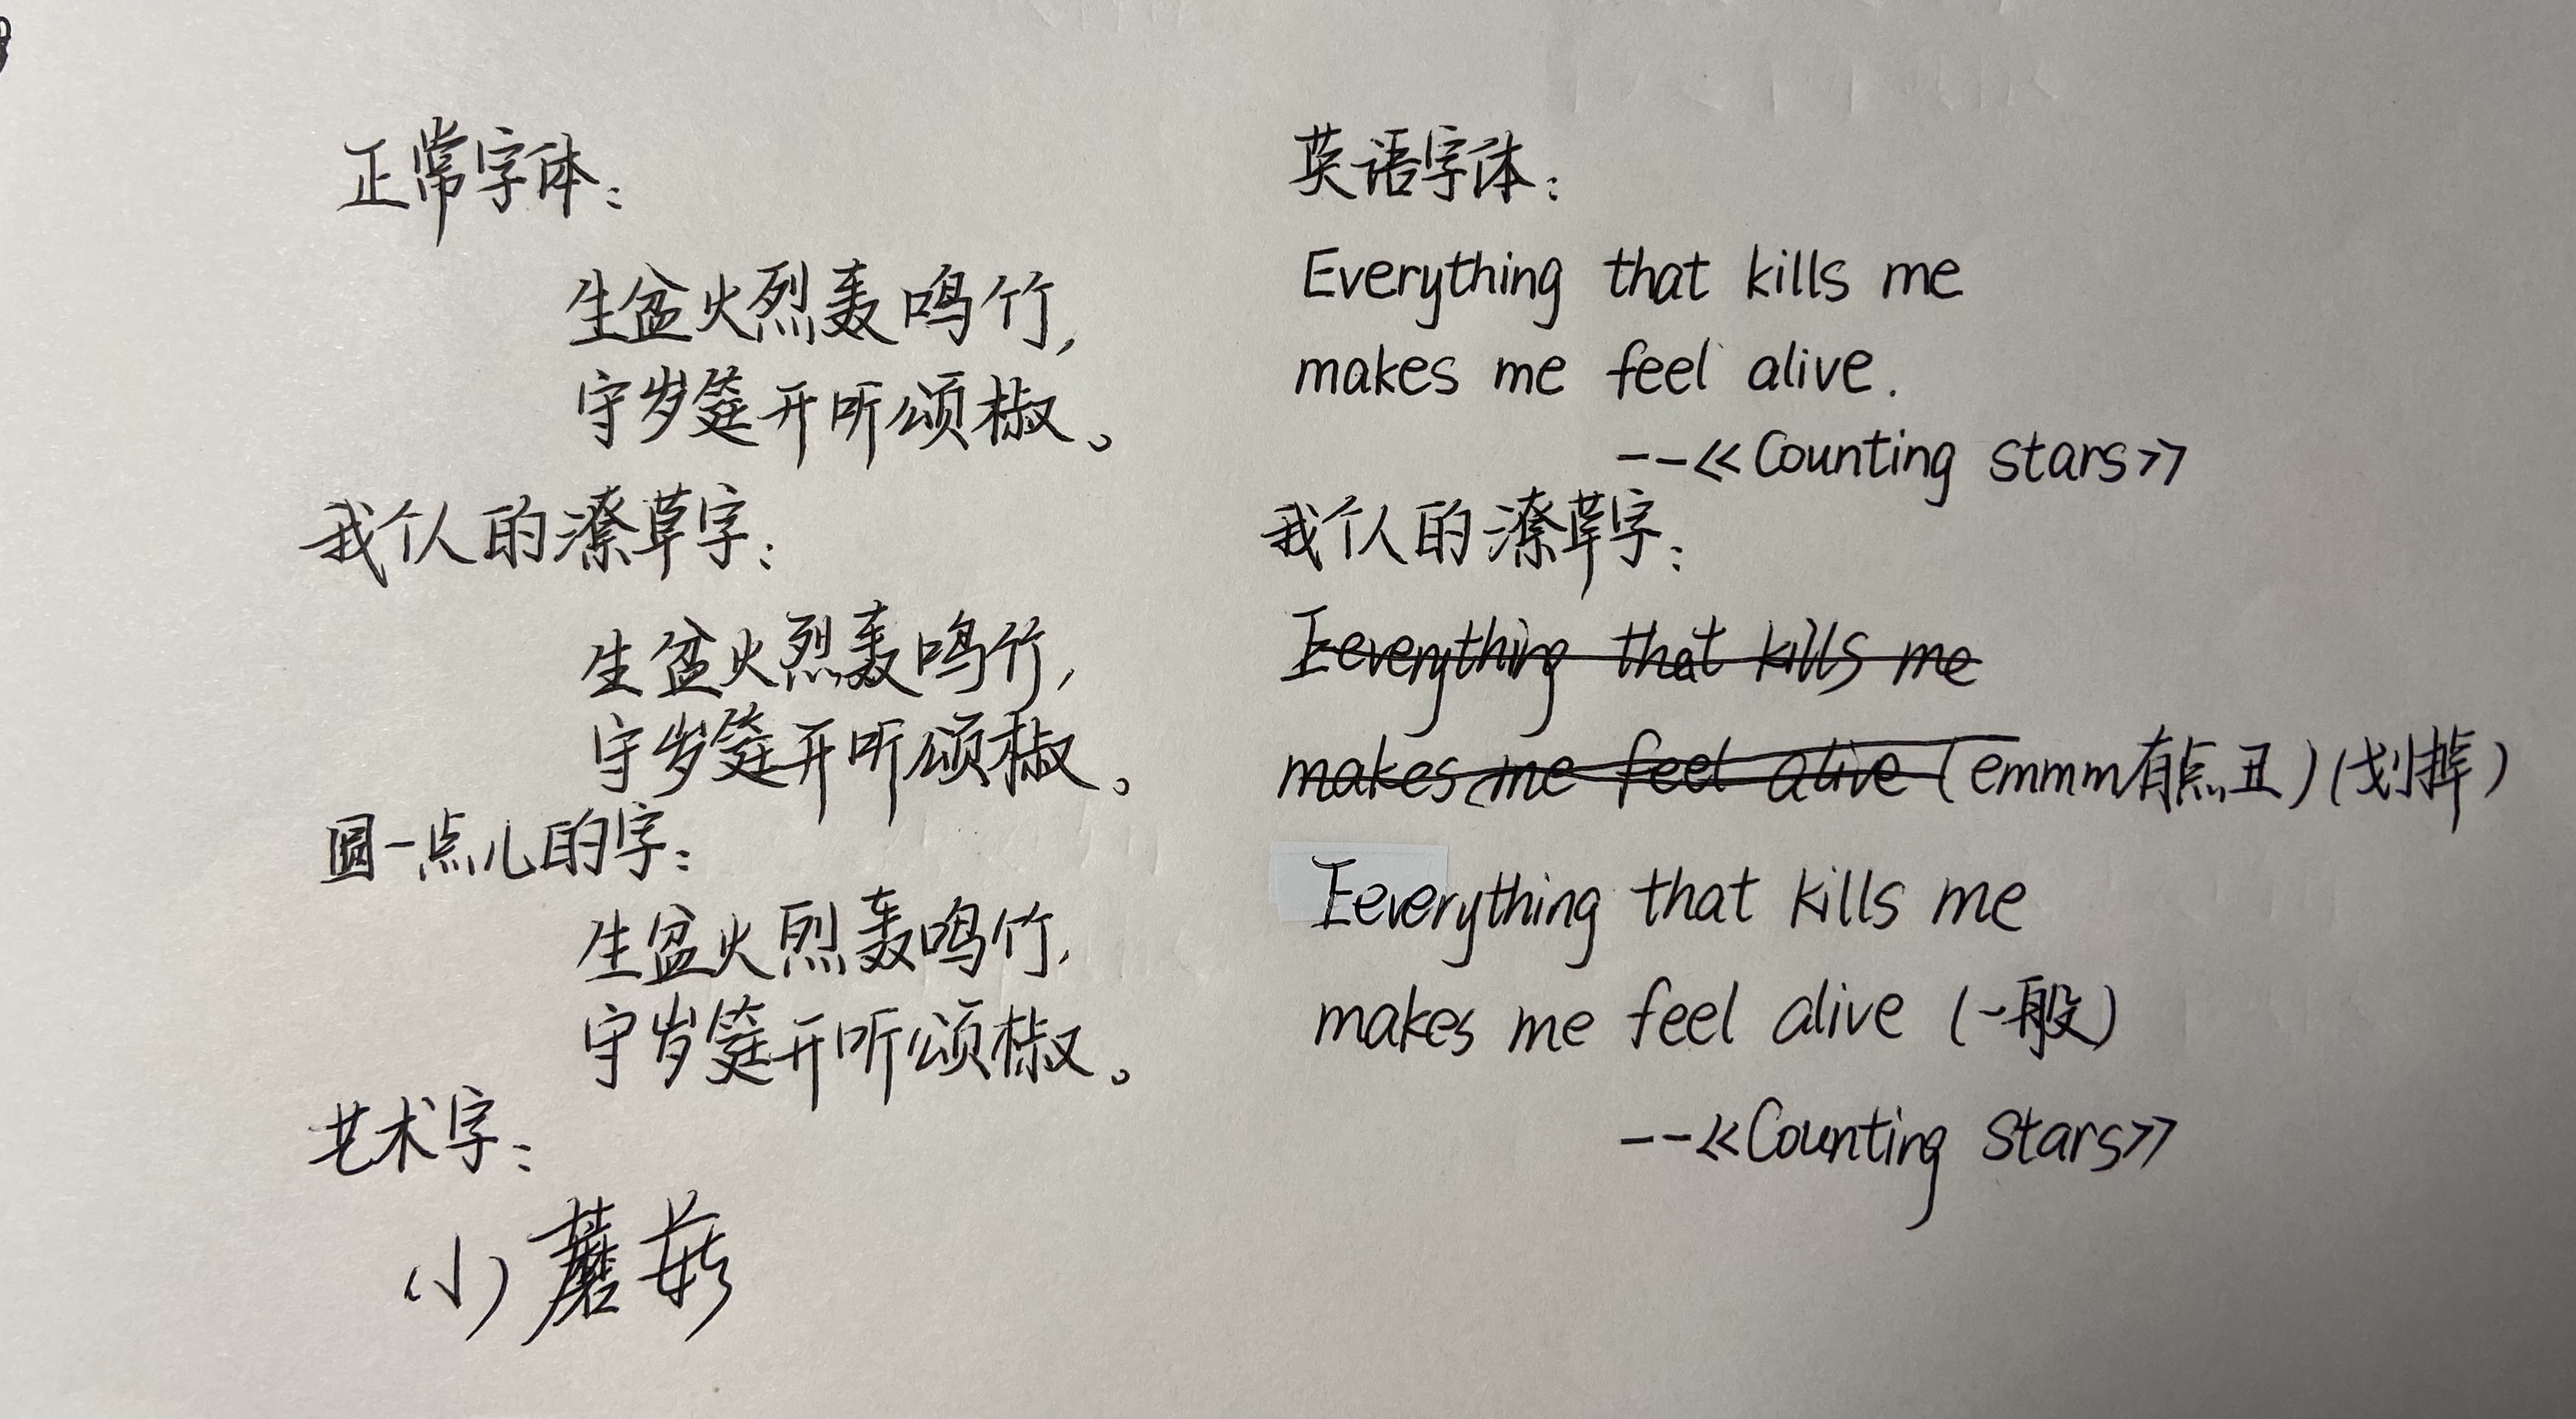 正常字体：
生盆火烈轰鸣竹，
守岁筵开听颂椒。
我个人的潦草字：
生盆火烈轰鸣竹，
守岁筵开听颂椒。
圆一点儿的字：
生盆火烈轰鸣竹，
守岁筵开听颂椒。
艺术字：
小蘑菇
英语字体：
Everything that kills me
makes me feel alive.
--《Counting stars》
我个人的潦草字：
Eeverything that kills me
makes me feel alive (emmm有点丑)(划掉)
Eeverything that kills me
makes me feel alive (一般)
--《Counting stars》